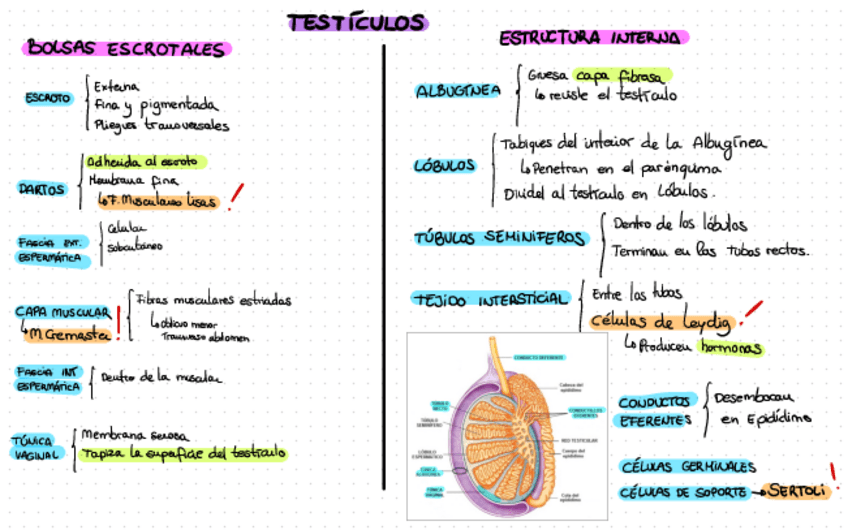 TESTÍCULOS
BOLSAS ESCROTALES
ESCROTO
Externa
Fina y pigmentada
Pliegues transversales
DARTOS
Adherida al escroto
Membrana fina
↳ F. Musculares lisas !
FASCIA EXT.
ESPERMÁTICA
Celular
Subcutáneo
CAPA MUSCULAR
↳ M Cremaster !
Fibras musculares estriadas
↳ oblicuo menor
Transverso abdomen
FASCIA INT
ESPERMÁTICA
Dentro de la muscular
TÚNICA
VAGINAL
Membrana serosa
Tapiza la superficie del testículo
ESTRUCTURA INTERNA
ALBUGÍNEA
Gruesa capa fibrosa
↳ reviste el testículo
LÓBULOS
Tabiques del interior de la Albugínea
↳ Penetran en el parénquima
Dividel al testículo en Lóbulos.
TÚBULOS SEMINIFEROS
Dentro de los lóbulos
Terminan en los tubos rectos.
TEJIDO INTERSTICIAL
Entre los tubos
Células de Leydig !
↳ Producen hormonas
CONDUCTO DEFERENTE
Cabeza del
epidídimo
TÚBULO
RECTO
CONDUCTILLOS
EFERENTES
TÚBULO
SEMINÍFERO
RED TESTICULAR
LÓBULO
ESPERMÁTICO
Cuerpo del
epidídimo
TÚNICA
ALBUGÍNEA
TÚNICA
VAGINAL
Cola del
epidídimo
CONDUCTOS
EFERENTES
Desembocan
en Epidídimo
CÉLULAS GERMINALES
CÉLULAS DE SOPORTE → SERTOLI !